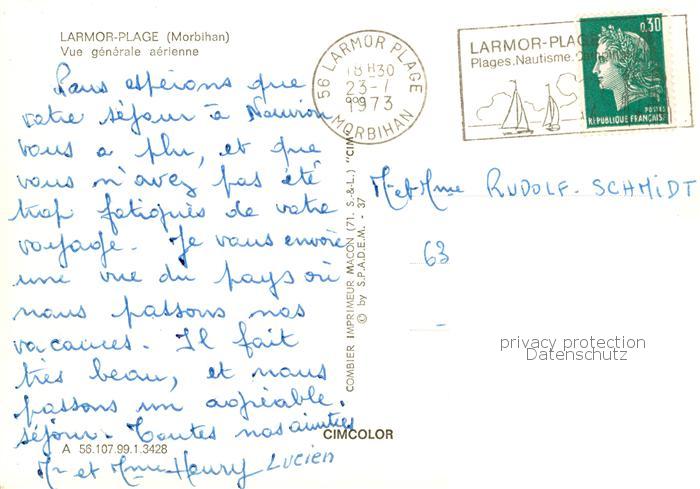 LARMOR-PLAGE (Morbihan)
Vue générale aérienne
Nous espérons que
votre séjour à Nouvion
vous a plu, et que
vous n'avez pas été
trop fatigués de votre
voyage. Je vous envoie
une vue du pays où
nous passons nos
vacances. Il fait
très beau, et nous
passons un agréable.
séjour. Toutes nos amitiés
Mr et Mme Henry Lucien
A 56.107.99.1.3428
CIMCOLOR
COMBIER IMPRIMEUR MACON (71. S.-&-L.) "CIM"
© by S.P.A.D.E.M. - 37
56 LARMOR PLAGE
18H30
23-7
1973
MORBIHAN
LARMOR-PLAGE
Plages.Nautisme.Camping
0,30
POSTES
REPUBLIQUE FRANCAISE
Mr et Mme RUDOLF. SCHMIDT
63
privacy protection
Datenschutz